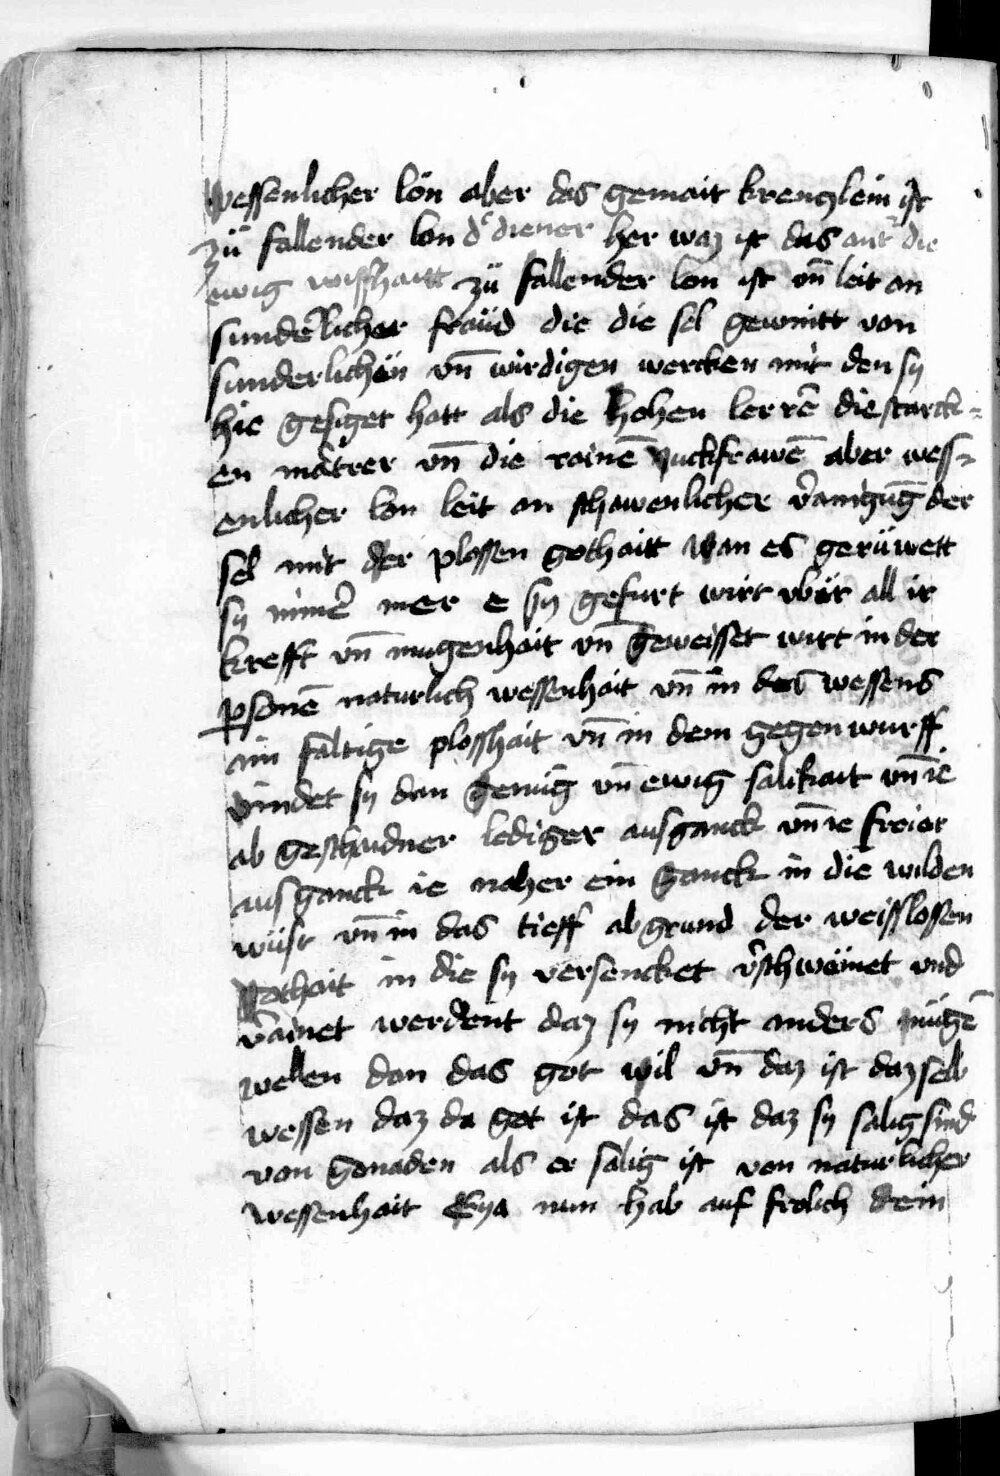 wessenlicher lön aber das gemait krenczlein ist
zü fallender lon dᵉ diener her waz ist das antᵗ die
ewig wisshaitt zü fallender lon ist vn̄ leit an
sunderlicher fraüd die die sel gewnitt von
sunderlichen vn̄ wirdigen wercken mit den sy
hie gesiget hatt als die hohen lerrē die starck-
en mātrer vn̄ die rainē juckfrawē aber wess-
enlicher lon leit an schawenlicher v̄ainigūg der
sel mit der plossen gothaitt wan es gerüwett
sy nimē mer e sy gefurt wirt vbär all ir
krefft vn̄ mugenhait vn̄ geweisset wirt in der
psonē naturlich wessenhait vn̄ in des wessens
ain faltige plosshait vn̄ in dem gegen wurff
vindet sy dan genūg vn̄ ewig salikait vn̄ ie
ab geschaidner lediger ausganck vn̄ ie freier
ausganck ie naher ein ganck in die wilden
wüst vn̄ in das tieff abgrund der weisslossen
gothait in die sy versencket v̄schwēmet vnd
v̄ainet werdent daz sy nicht anders mügē
wellen dan das got wil vn̄ daz ist daz selb
wessen daz da got ist das ist daz sy salig sind
von genaden als er salig ist von naturlicher
wessenhait Eya nun hab auf frolich dein